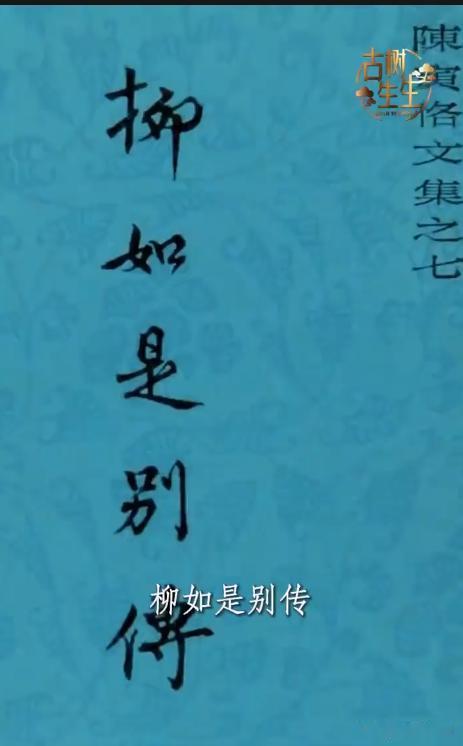 陳寅恪文集之七
古树
生生
柳如是别傳
柳如是别传